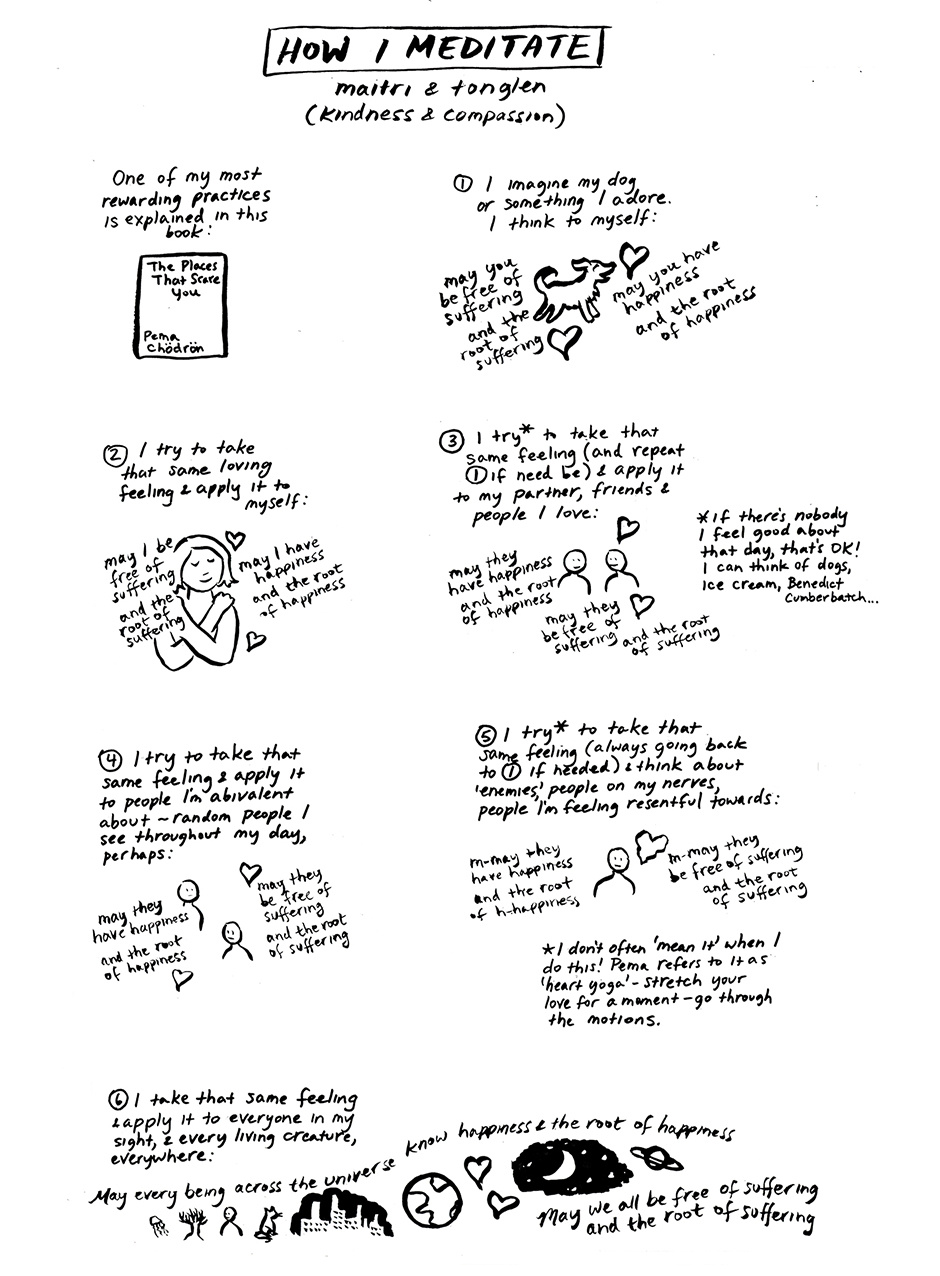 HOW I MEDITATE
maitri & tonglen
(kindness & compassion)
One of my most
rewarding practices
is explained in this
book:
The Places
That Scare
You
Pema
Chödrön
① I imagine my dog
or something I adore.
I think to myself:
may you
be free of
suffering
and the
root of
suffering
may you have
happiness
and the root
of happiness
② I try to take
that same loving
feeling & apply it to
myself:
may I be
free of
suffering
and the
root of
suffering
may I have
happiness
and the root
of happiness
③ I try* to take that
same feeling (and repeat
① if need be) & apply it
to my partner, friends &
people I love:
may they
have happiness
and the root
of happiness
may they
be free of
suffering
and the root
of suffering
*If there's nobody
I feel good about
that day, that's OK!
I can think of dogs,
Ice cream, Benedict
Cumberbatch...
④ I try to take that
same feeling & apply it
to people I'm abivalent
about ~ random people I
see throughout my day,
perhaps:
may they
have happiness
and the root
of happiness
may they
be free of
suffering
and the root
of suffering
⑤ I try* to take that
same feeling (always going back
to ① if needed) & think about
'enemies,' people on my nerves,
people I'm feeling resentful towards:
m-may they
have happiness
and the root
of h-happiness
m-may they
be free of suffering
and the root
of suffering
*I don't often 'mean it' when I
do this! Pema refers to it as
'heart yoga' - stretch your
love for a moment - go through
the motions.
⑥ I take that same feeling
& apply it to everyone in my
sight, & every living creature,
everywhere:
May every being across the universe know happiness & the root of happiness
May we all be free of suffering
and the root of suffering